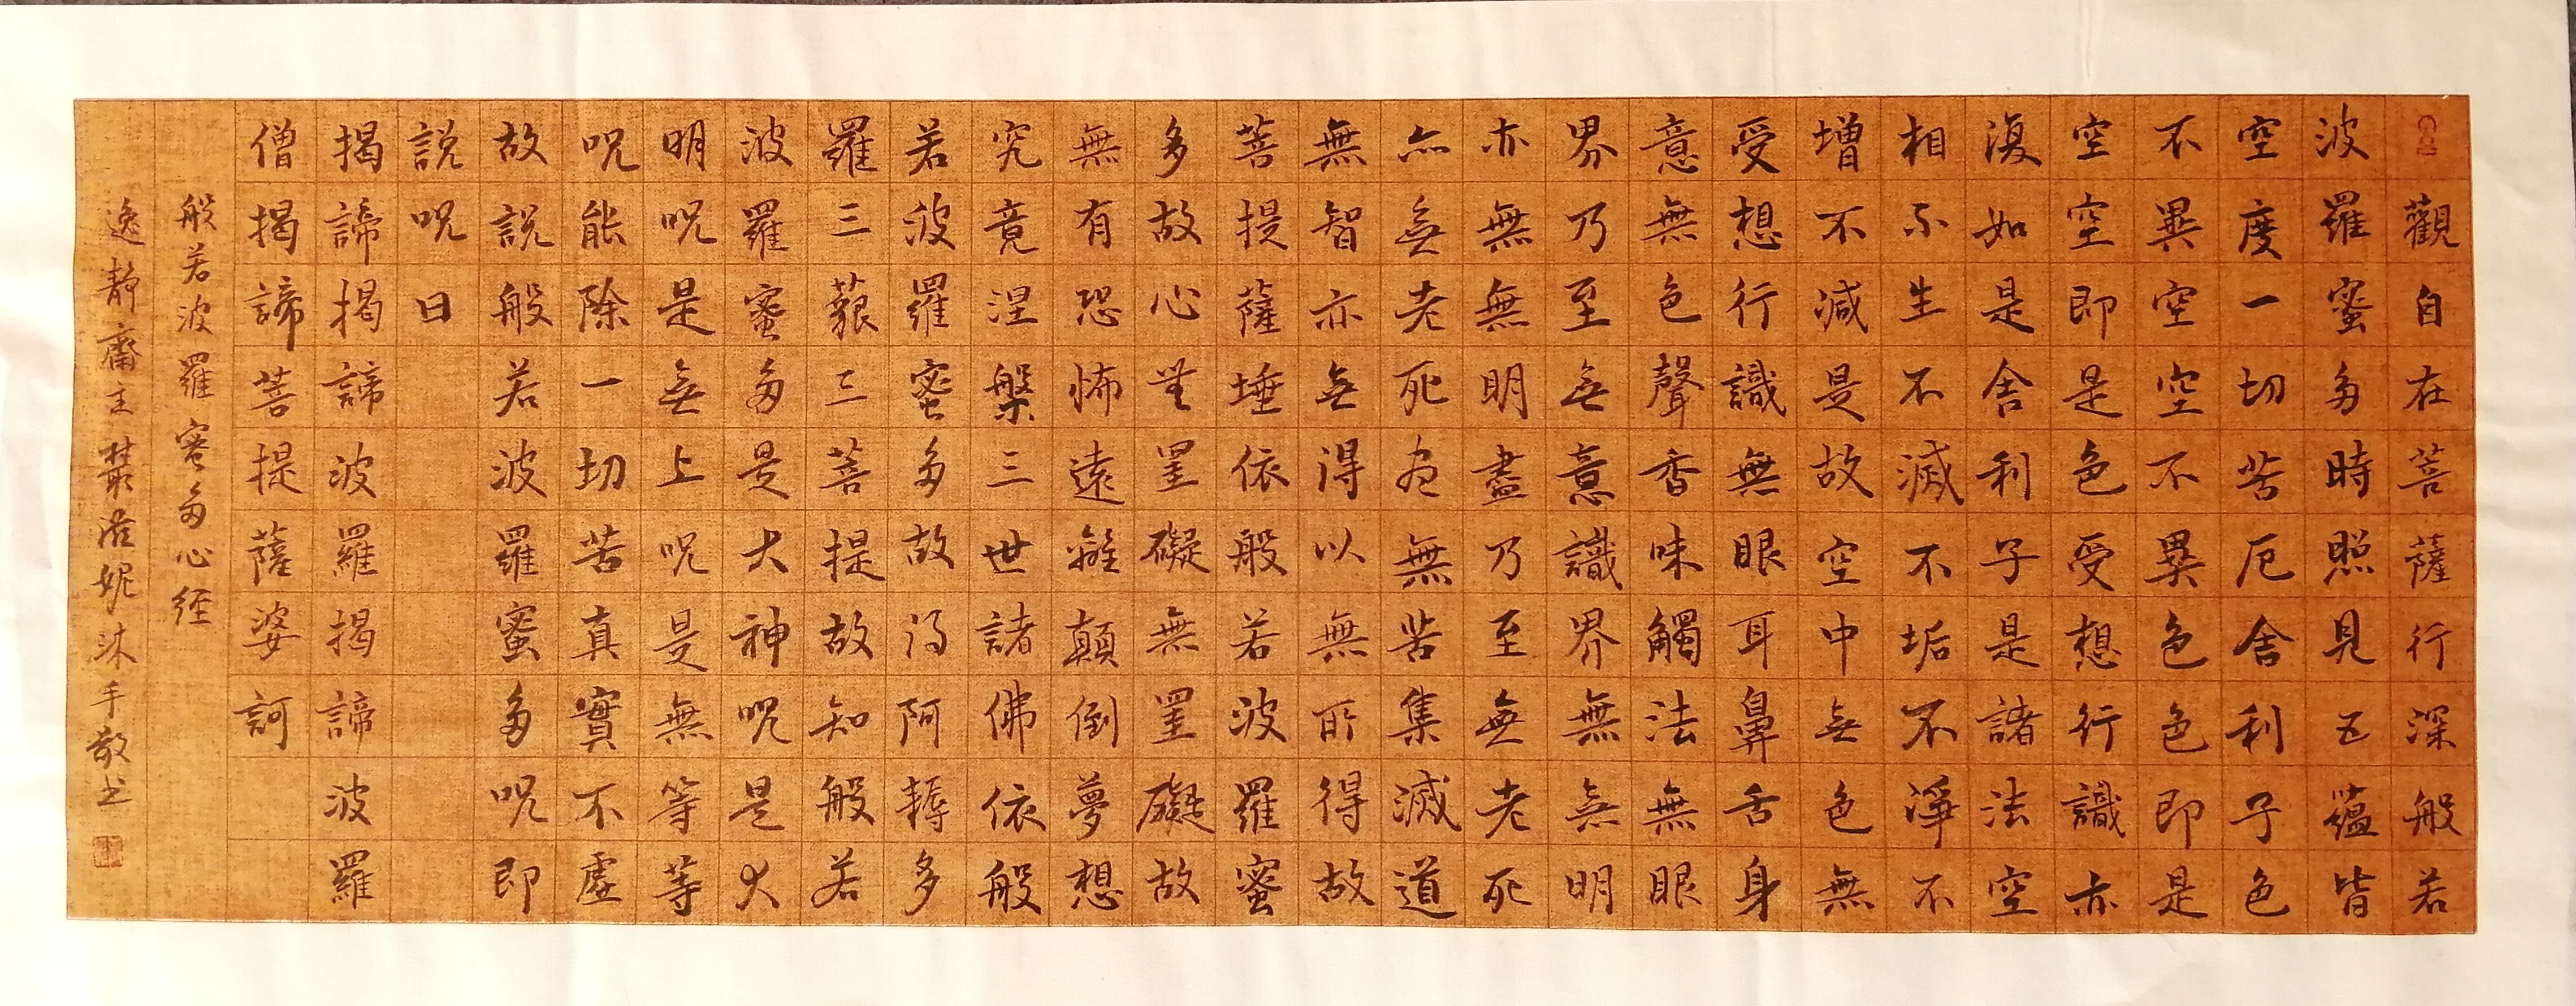 觀自在菩薩行深般若
波羅蜜多時照見五蘊皆
空度一切苦厄舍利子色
不異空空不異色色即是
空空即是色受想行識亦
復如是舍利子是諸法空
相不生不滅不垢不淨不
增不減是故空中無色無
受想行識無眼耳鼻舌身
意無色聲香味觸法無眼
界乃至無意識界無無明
亦無無明盡乃至無老死
亦無老死盡無苦集滅道
無智亦無得以無所得故
菩提薩埵依般若波羅蜜
多故心無罣礙無罣礙故
無有恐怖遠離顛倒夢想
究竟涅槃三世諸佛依般
若波羅蜜多故得阿耨多
羅三藐三菩提故知般若
波羅蜜多是大神呪是大
明呪是無上呪是無等等
呪能除一切苦真實不虛
故說般若波羅蜜多呪即
說呪曰
揭諦揭諦波羅揭諦波羅
僧揭諦菩提薩婆訶
般若波羅蜜多心經
逸靜齋主妮沐手敬书